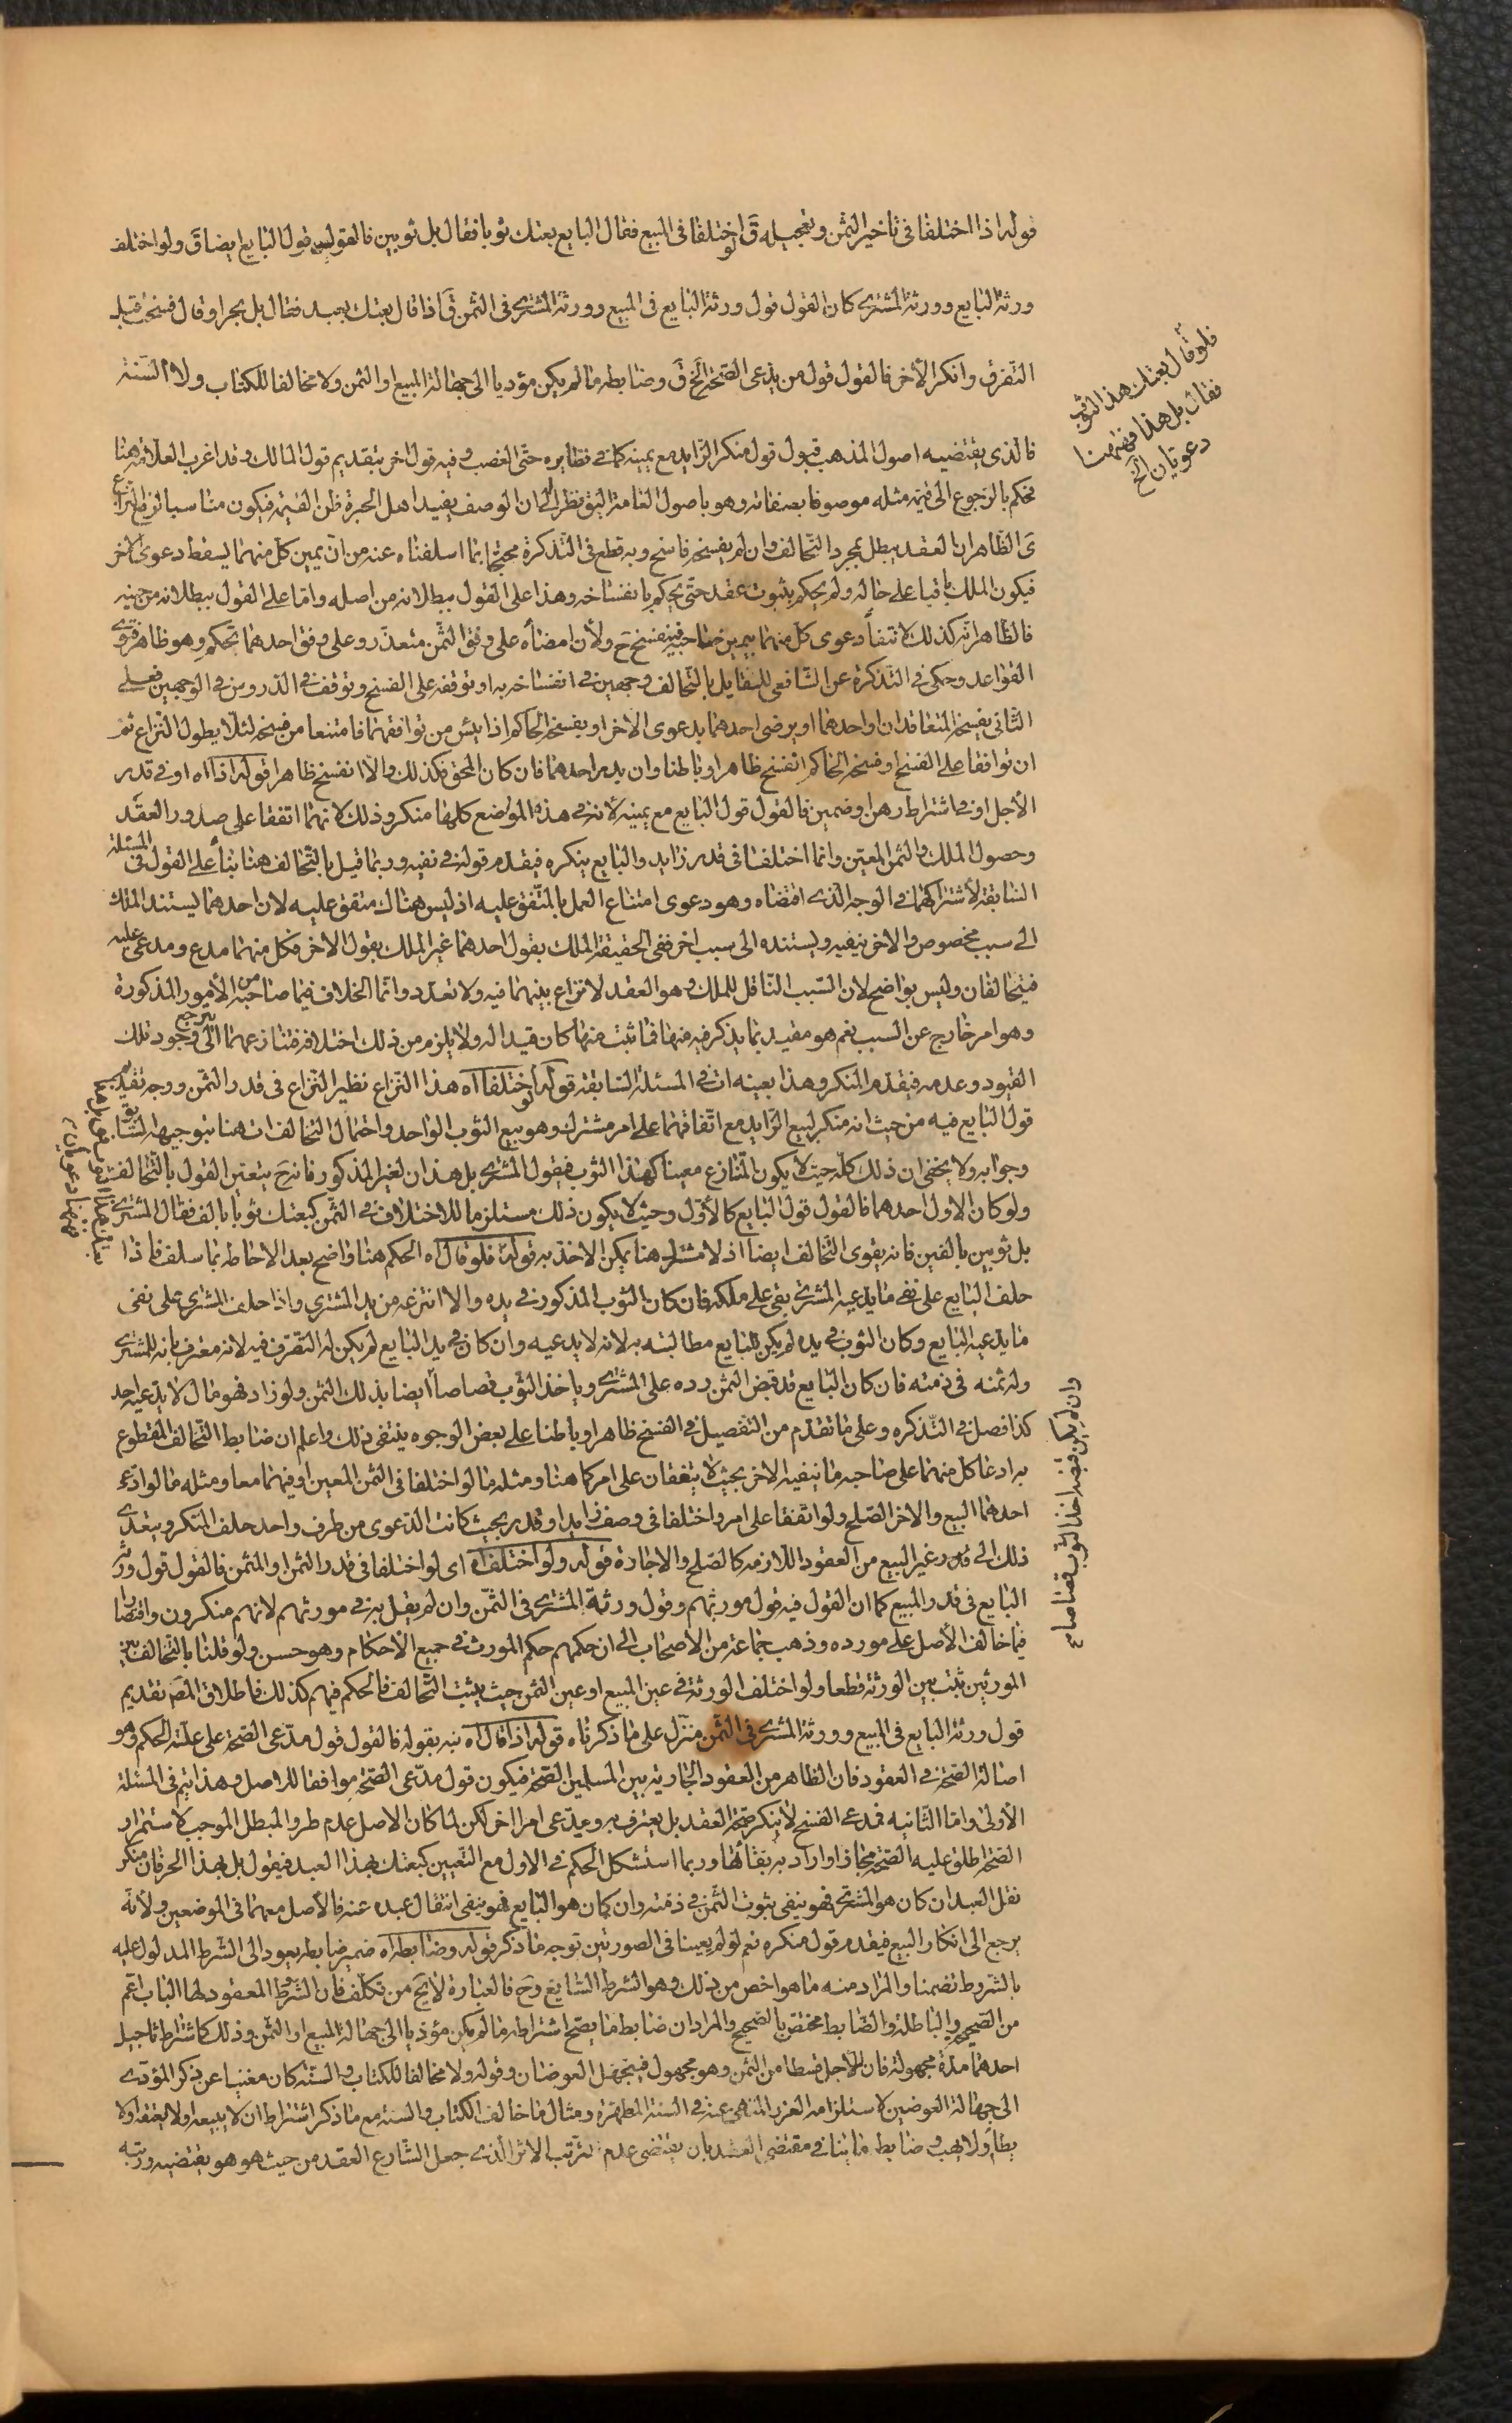 قوله اذا اختلفا فى تاخير الثمن وتعجيله قَ لو اختلفا فى المبيع فقال البايع بعتك ثوبا فقال بل ثوبين فالقول قول البايع ايضا قَ ولو اختلف
ورثة البايع وورثة المشترى كان القول قول ورثة البايع فى المبيع وورثة المشترى فى الثمن قَ اذا قال بعتك بعبد فقال بل بحر او قال فسخت قبل
التفرق وانكر الاخر فالقول قول من يدعى الصحة الخ قَ وضابطه ما لم يكن مؤديا الى جهالة المبيع او الثمن ولا مخالفا للكتاب ولا السنة
فلو قال بعتك هذا الثوب
فقال بل هذا فهنا
دعويان الخ
فالذى يقتضيه اصول المذهب قبول قول منكر الزايد مع يمينه كما فى نظايره حتى الغصب وفيه قول اخر بتقديم قول المالك وقد اغرب العلامة هنا
فحكم بالرجوع الى قيمة مثله موصوفا بصفاته وهو باصول العامة اليق نظرا الى ان الوصف يفيد اهل الخبرة ظن القيمة فيكون مناسبا لرفع النزاع
ى الظاهر ان العقد يبطل بمجرد التحالف وان لم يفسخه فاسخ وبه قطع فى التذكرة محتجا بما اسلفناه عنه من ان يمين كل منهما يسقط دعوى الاخر
فيكون الملك باقيا على حاله ولم يحكم بثبوت عقد حتى يحكم بانفساخه وهذا على القول ببطلانه من اصله واما على القول ببطلانه من حينه
فالظاهر انه كذلك لانتفأ دعوى كل منهما بيمين صاحبه فينفسخ حَ ولان امضأه على وفق الثمن متعذر وعلى وفق احدهما تحكم وهو ظاهر قوى
القواعد وحكى فى التذكرة عن الشافعى للقايل بالتحالف وجهين فى انفساخه به او توقفه على الفسخ وتوقف فى الدروس فى الوجهين فعلى
الثانى يفسخه المتعاقدان او احدهما او يرضى احدهما بدعوى الاخر او يفسخه الحاكم اذا يئس من توافقهما وامتنعا من فسخه لئلا يطول النزاع ثم
ان توافقا على الفسخ او فسخه الحاكم انفسخ ظاهرا وباطنا وان بدر احدهما فان كان المحق فكذلك والا انفسخ ظاهرا قوله اذا اه او فى قدر
الاجل او فى اشتراط رهن او ضمين فالقول قول البايع مع يمينه لانه فى هذه المواضع كلها منكر وذلك لانهما اتفقا على صدور العقد
وحصول الملك والثمن المعين وانما اختلفا فى قدر زايد والبايع ينكره فيقدم قوله فى نفيه وربما قيل بالتحالف هنا بنأ على القول فى المسئلة
السابقة لاشتراكهما فى الوجه الذى اقتضاه وهو دعوى امتناع العمل بالمتفق عليه اذ ليس هناك متفق عليه لان احدهما يسند الملك
الى سبب مخصوص والاخر ينفيه ويسنده الى سبب اخر ففى الحقيقة الملك بقول احدهما غير الملك بقول الاخر فكل منهما مدع ومدعى عليه
فيتحالفان وليس بواضح لان السبب الناقل للملك وهو العقد لا نزاع بينهما فيه ولا تعدد وانما الخلاف فيما صاحبه من الامور المذكورة
وهو امر خارج عن السبب نعم هو مقيد بما يذكر فيه منها فما ثبت منها كان قيدا له ولا يلزم من ذلك اختلافه فتنازعهما يرجع الى وجود تلك
القيود وعدمه فيقدم المنكر وهذا بعينه ات فى المسئلة السابقة قوله لو اختلفا اه هذا النزاع نظير النزاع فى قدر الثمن ووجه تقديم
قول البايع فيه من حيث انه منكر لبيع الزايد مع اتفاقهما على امر مشترك وهو بيع الثوب الواحد واحتمال التحالف ات هنا بتوجيهه السابق
وجوابه ولا يخفى ان ذلك كله حيث لا يكون المتنازع معينا كهذا الثوب فيقول المشترى بل هذان لغير المذكور فانه حَ يتعين القول بالتحالف
ولو كان الاول احدهما فالقول قول البايع كالاول وحيث لا يكون ذلك مستلزما للاختلاف فى الثمن كبعتك ثوبا بالف فقال المشترى
بل ثوبين بالفين فانه يقوى التحالف ايضا اذ لا مشترك هنا يمكن الاخذ به قوله فلو قال اه الحكم هنا واضح بعد الاحاطة بما سلف فاذا
حلف البايع على نفى ما يدعيه المشترى بقى على ملكه فان كان الثوب المذكور فى يده والا انتزعه من يد المشترى واذا حلف المشترى على نفى
ما يدعيه البايع وكان الثوب فى يده لم يكن للبايع مطالبته به لانه لا يدعيه وان كان فى يد البايع لم يكن له التصرف فيه لانه معترف بانه للمشترى
وله ثمنه فى ذمته فان كان البايع قد قبض الثمن رده على المشترى وياخذ الثوب قصاصا ايضا بذلك الثمن ولو زاد فهو مال لا يدعيه احد
وان لم يكن قبضه اخذ الثوب قصاصا ع
كذا فصل فى التذكره وعلى ما تقدم من التفصيل فى الفسخ ظاهرا وباطنا على بعض الوجوه ينتفى ذلك واعلم ان ضابط التحالف المقطوع
به ادعا كل منهما على صاحبه ما ينفيه الاخر بحيث لا يتفقان على امر كما هنا ومثله ما لو اختلفا فى الثمن المعين او فيهما معا ومثله ما لو ادعى
احدهما البيع والاخر الصلح ولو اتفقا على امر واختلفا فى وصف زايد او قدر بحيث كانت الدعوى من طرف واحد حلف المنكر ويتعدى
ذلك الى غير البيع من العقود اللازمه كالصلح والاجارة قوله ولو اختلف اه اى لو اختلفا فى قدر الثمن او المثمن فالقول قول ورثة
البايع فى قدر المبيع كما ان القول فيه قول مورثهم وقول ورثة المشترى فى الثمن وان لم يقل به فى مورثهم لانهم منكرون واقتصارا
فيما خالف الاصل على مورده وذهب جماعة من الاصحاب الى ان حكمهم حكم المورث فى جميع الاحكام وهو حسن ولو قلنا بالتحالف بين
المورثين ثبت بين الورثة قطعا ولو اختلف الورثة فى عين المبيع او عين الثمن حيث يثبت التحالف فالحكم فيهم كذلك فاطلاق المصَ تقديم
قول ورثة البايع فى المبيع وورثة المشترى فى الثمن منزل على ما ذكرناه قوله اذا قال اه نبه بقوله فالقول قول مدعى الصحة على علة الحكم وهو
اصالة الصحة فى العقود فان الظاهر من العقود الجارية بين المسلمين الصحة فيكون قول مدعى الصحة موافقا للاصل وهذا يتم فى المسئلة
الاولى واما الثانيه فمدعى الفسخ لا ينكر صحة العقد بل يعترف به ويدعى امرا اخر لكن لما كان الاصل عدم طرو المبطل الموجب لاستمرار
الصحة اطلق عليه الصحة مجازا واراد به بقائها وربما استشكل الحكم فى الاول مع التعيين كبعتك بهذا العبد فيقول بل بهذا الحر فان منكر
نقل العبد ان كان هو المشترى فهو ينفى ثبوت الثمن فى ذمته وان كان هو البايع فهو ينفى انتقال عبده عنه فالاصل معهما فى الموضعين ولانه
يرجع الى انكار البيع فيقدم قول منكره نعم لو لم يعينا فى الصورتين توجه ما ذكر قوله وضابطه اه ضمير ضابطه يعود الى الشرط المدلول عليه
بالشروط تضمنا والمراد منه ما هو اخص من ذلك وهو الشرط الشايع وحَ فالعبارة لا يخَ من تكلف فان الشروط المعقود لها الباب اعم
من الصحيحه والباطلة والضابط مختص بالصحيح والمراد ان ضابط ما يصح اشتراطه ما لم يكن مؤديا الى جهالة المبيع او الثمن وذلك كاشتراط تاجيل
احدهما مدة مجهولة فان للاجل قسطا من الثمن وهو مجهول فيتجهل العوضان وقوله ولا مخالفا للكتاب والسنة كان مغنيا عن ذكر المؤدى
الى جهالة العوضين لاستلزامه الغرر المنهى عنه فى السنة المطهرة ومثال ما خالف الكتاب والسنة مع ما ذكر اشتراط ان لا يبيعه ولا يعتقه او لا
يطأ ولا يهب وضابطه ما ينافى مقتضى العقد بان يقتضى عدم ترتب الاثر الذى جعل الشارع العقد من حيث هو هو يقتضيه ورتبه